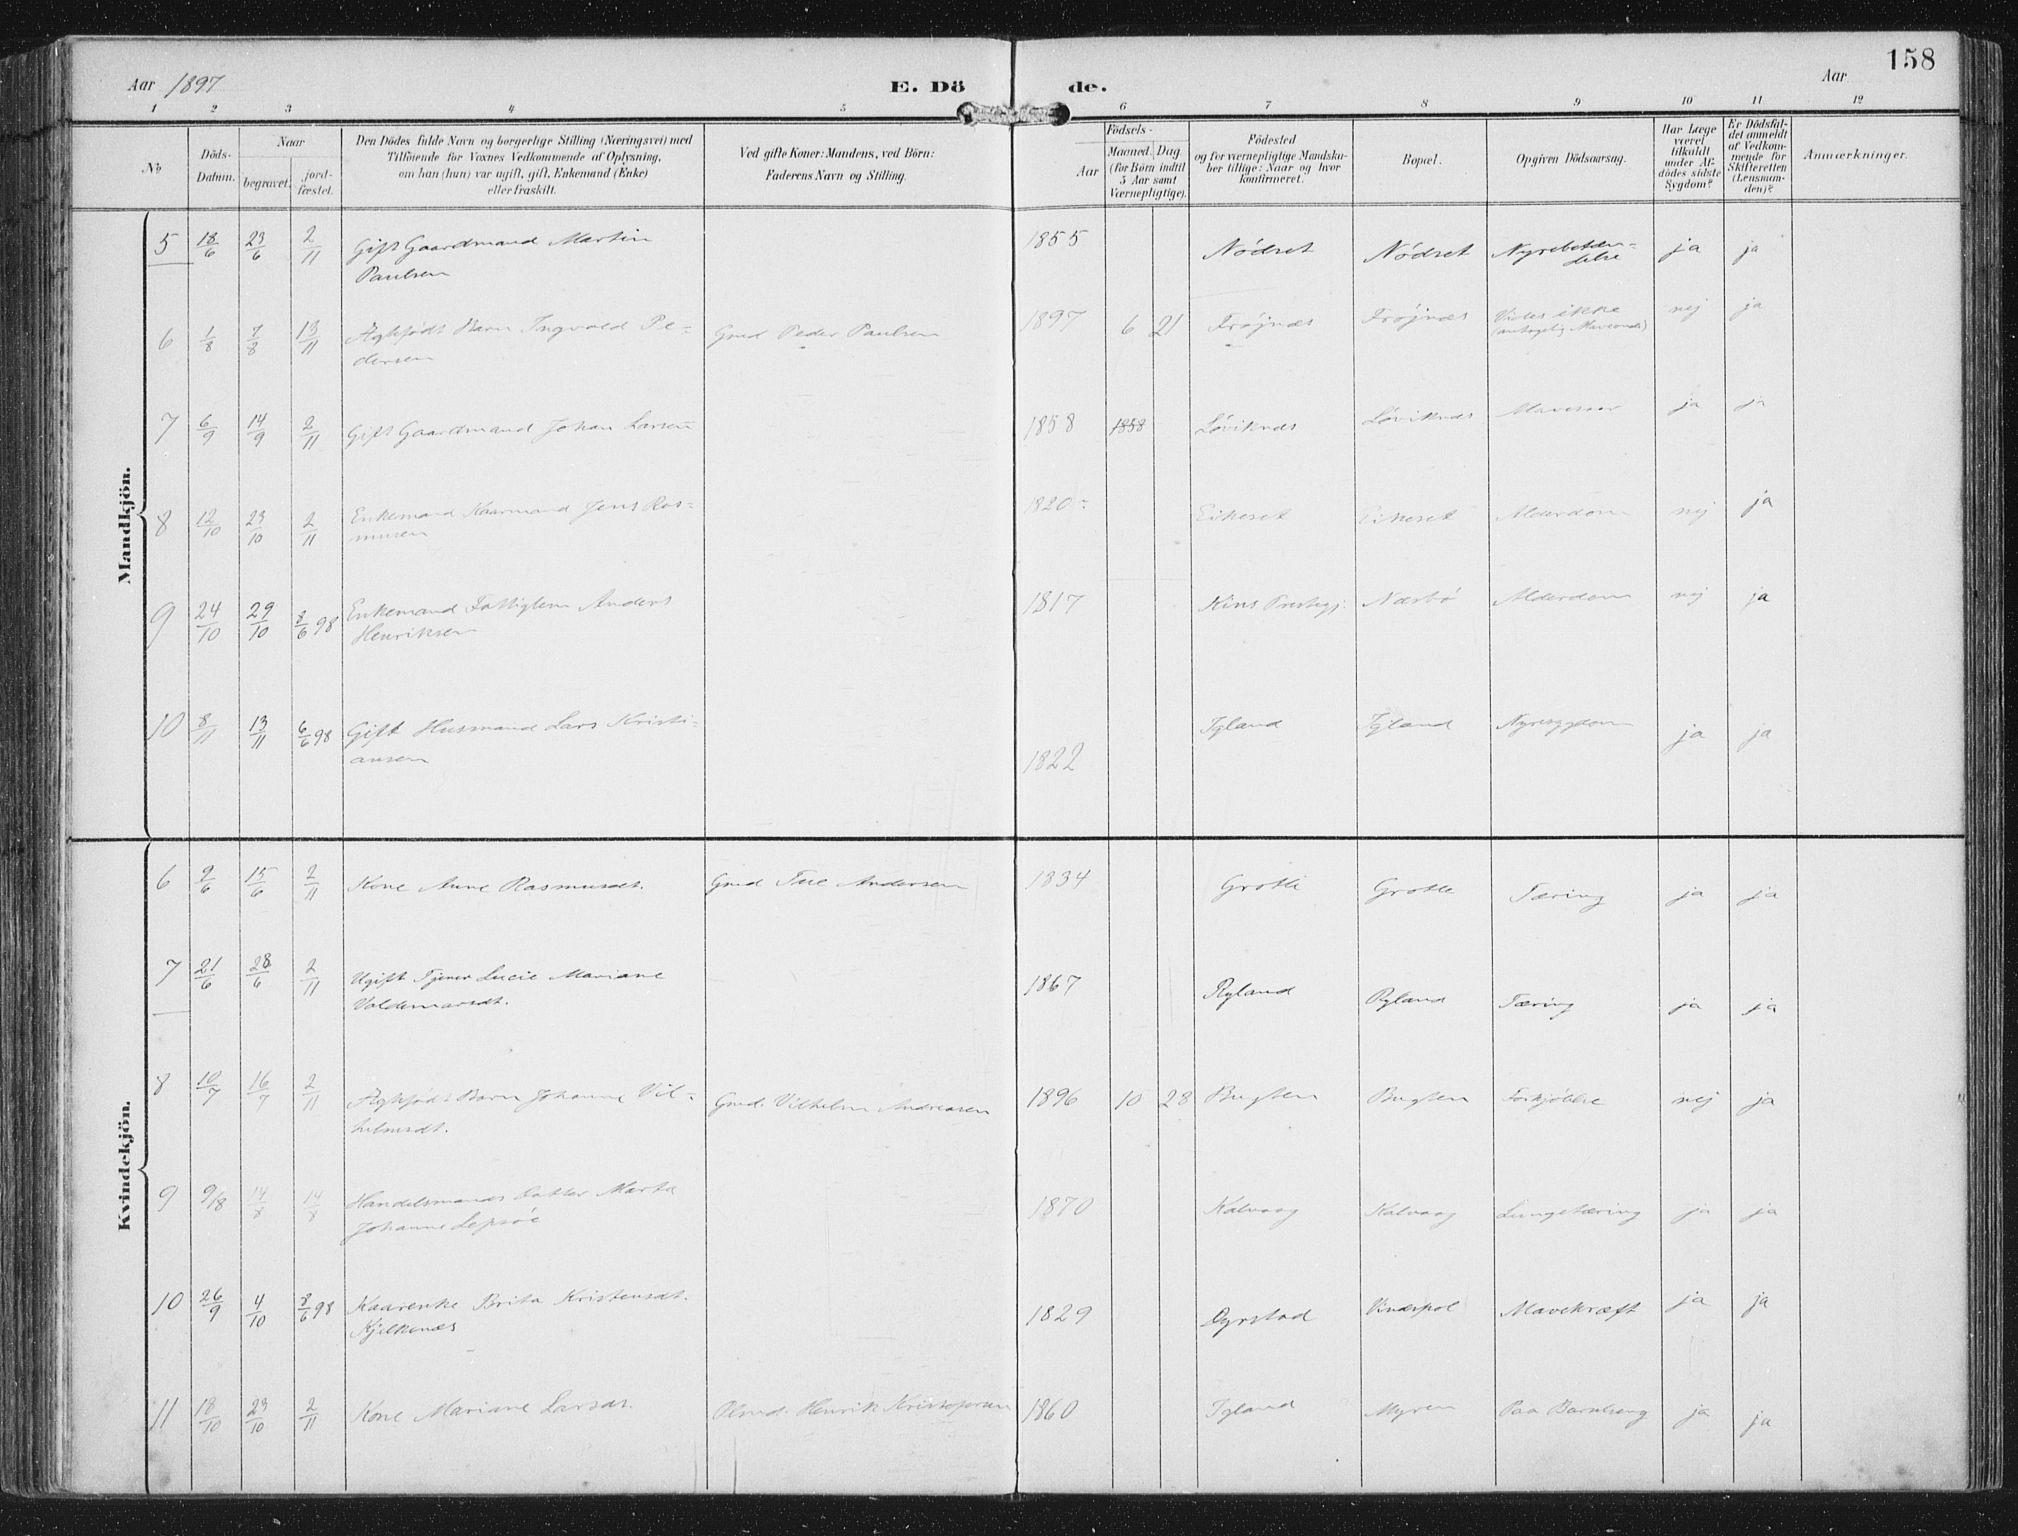 158
Aar 1897
E. Dö de.
Aar
1 2 3 4 5 6 7 8 9 10 11 12
No
Döds-
Datum.
Naar
begravet.
jord-
fæstet.
Den Dödes fulde Navn og borgerlige Stilling (Næringsvei) med
Tilföiende for Voxnes Vedkommende af Oplysning,
om han (hun) var ugift, gift, Enkemand (Enke)
eller fraskilt.
Ved gifte Koner: Mandens, ved Börn:
Faderens Navn og Stilling.
Födsels-
Aar
Maaned. Dag
(for Börn indtil
5 Aar samt
Værnepligtige).
Födested
og for værnepligtige Mandska-
ber tillige: Naar og hvor
konfirmeret.
Bopæl.
Opgiven Dödsaarsag.
Har Læge
været
tilkaldt
under Af-
dödes sidste
Sygdom?
Er Dödsfal-
det anmeldt
af Vedkom-
mende for
Skifteretten
(Lensman-
den)?
Anmærkninger.
Mandkjön.
5 18/6 23/6 2/11 Gift Gaardmand Martin 1855 Nödset Nödset Nyrebetæn- ja ja
Paulsen delse
6 1/8 7/8 13/11 Ægtefødt Barn Ingvald Pe- Gmd Peder Paulsen 1897 6 21 Frøjnæs Frøjnæs Vides ikke nej ja
dersen
7 6/9 14/9 2/11 Gift Gaardmand Johan Larsen 1858 1858 Løviknæs Løviknæs Mavesaar ja ja
8 12/10 23/10 2/11 Enkemand Kaarmand Jens Ras- 1820 Eikeset Eikeset Alderdom nej ja
musen
9 24/10 29/10 8/6 98 Enkemand Fattiglem Anders 1817 Kins Prestegj. Næsbø Alderdom nej ja
Henriksen
10 8/11 13/11 6/6 98 Gift Husmand Lars Kristi- 1822 Igland Igland Nyresygdom ja ja
ansen
Kvindekjön.
6 9/6 15/6 2/11 Kone Anne Rasmusdt. Gmd Tue Andersen 1834 Grotle Grotle Tæring ja ja
7 21/6 28/6 2/11 Ugift Tjener Lucie Mariane 1867 Ryland Ryland Tæring ja ja
Valdemarsdt.
8 10/7 16/7 2/11 Ægtefødt Barn Johanne Vil- Gmd. Vilhelm Andreasen 1896 10 28 Bugten Bugten Forkjølelse nej ja
helmsdt.
9 9/8 14/8 14/8 Handelsmands Datter Marta 1870 Kalvaag Kalvaag Lungetæring ja ja
Johanne Lepsøe
10 26/9 4/10 8/6 98 Kaarenke Brita Kristensdt. 1829 Dyrstad Vindspol Mavekræft ja ja
Kjelkenæs
11 18/10 23/10 2/11 Kone Mariane Larsdt. Henrik Kristofersen 1860 Igland Myren Paa Barselseng ja ja